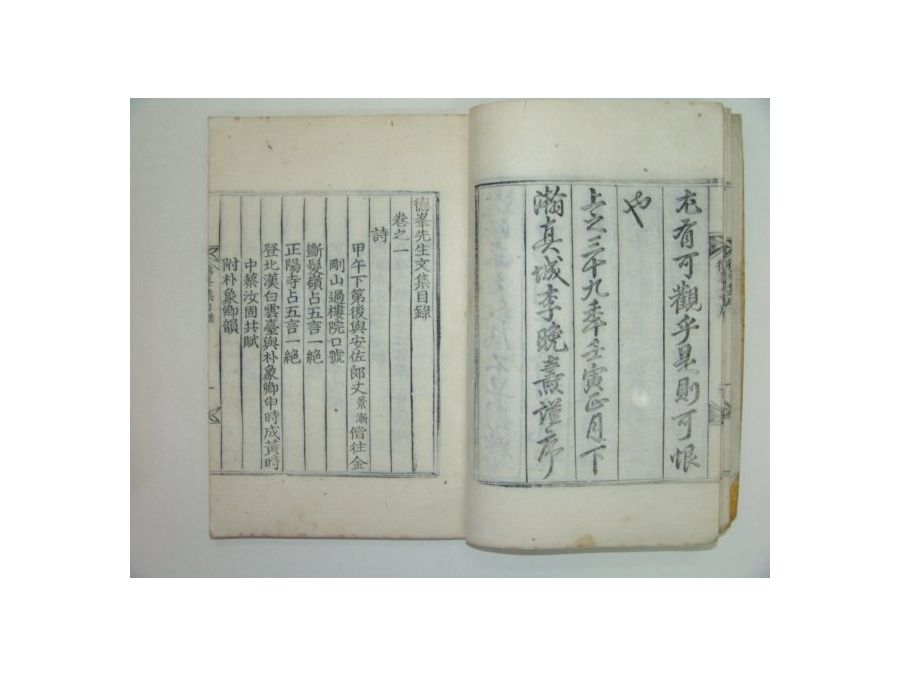 尤有可觀乎是則可恨
也
上之三十九年壬寅正月下
瀚眞城李晩燾謹序
德峯先生文集目錄
卷之一
詩
甲午下第後與安佐郎丈景漸偕往金
剛山過樓院口號
斷髮嶺占五言一絶
正陽寺占五言一絶
登北漢白雲臺與朴象卿申時成黃時
中蔡汝固共賦
附朴象卿韻